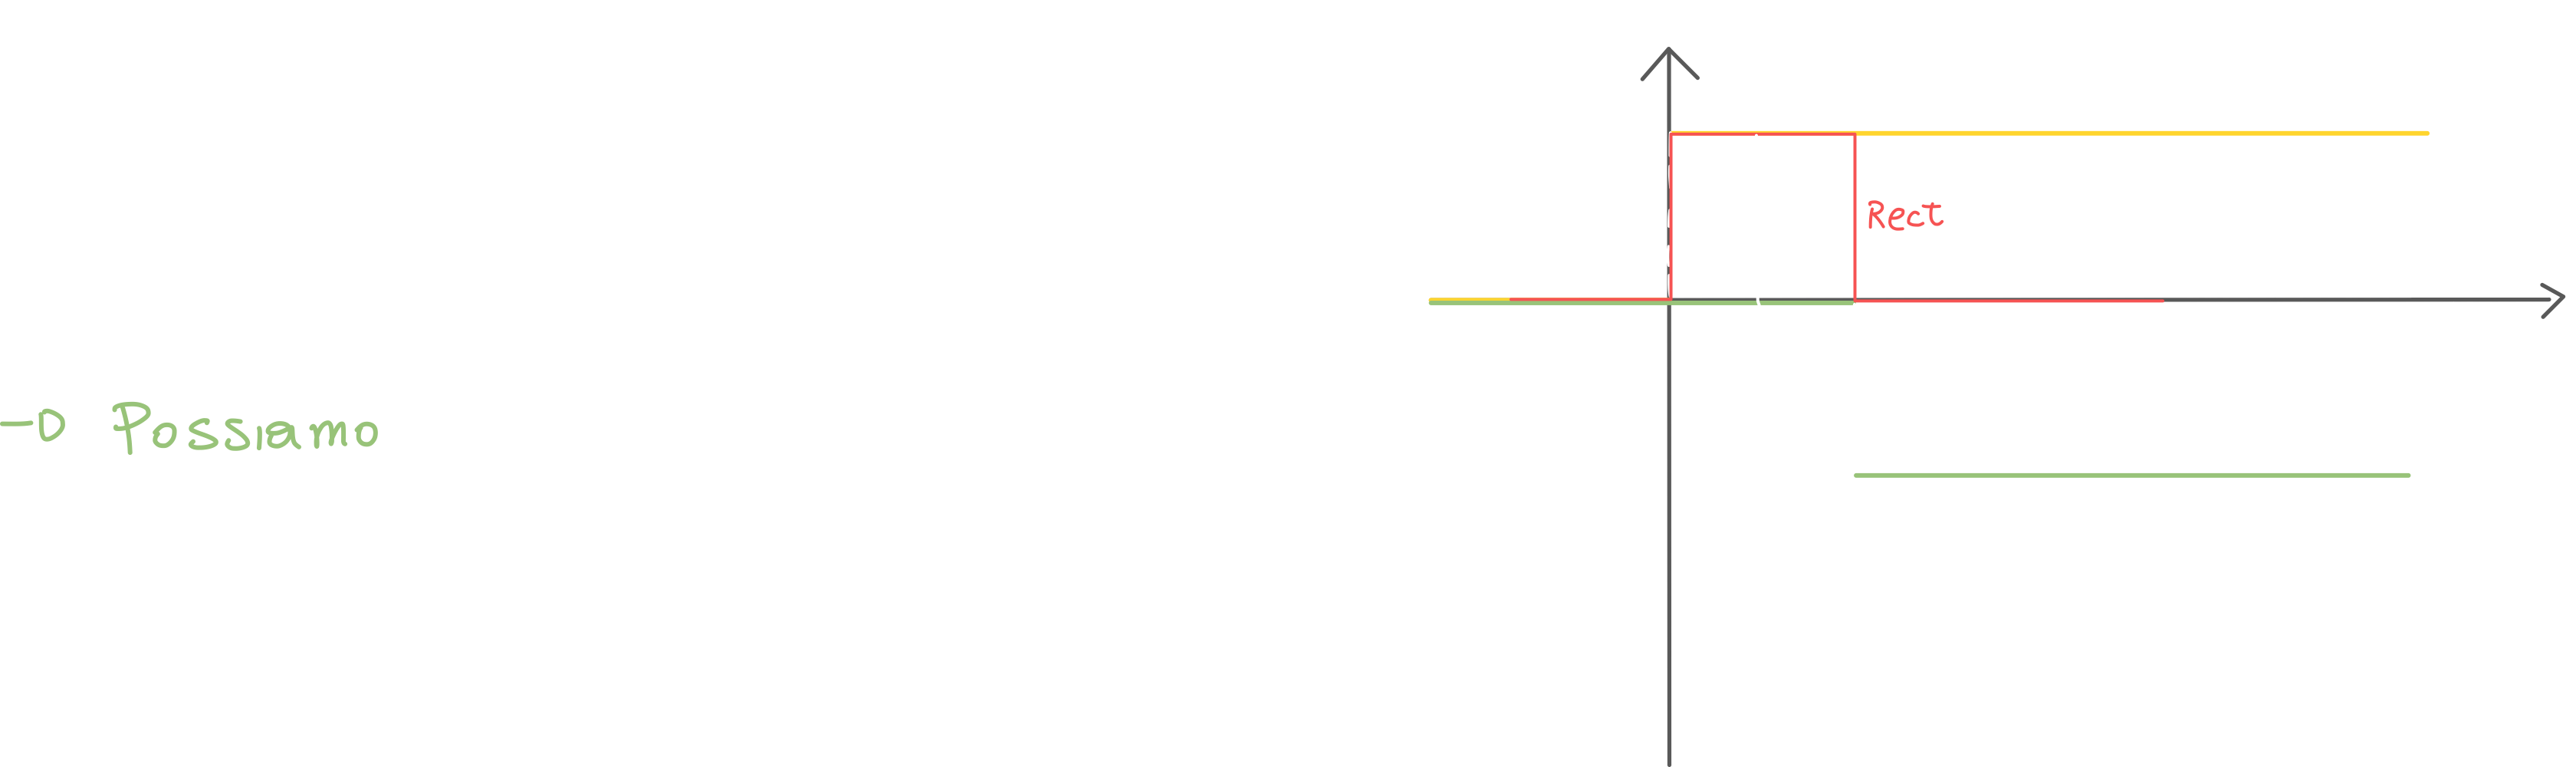 Rect
-D Possiamo